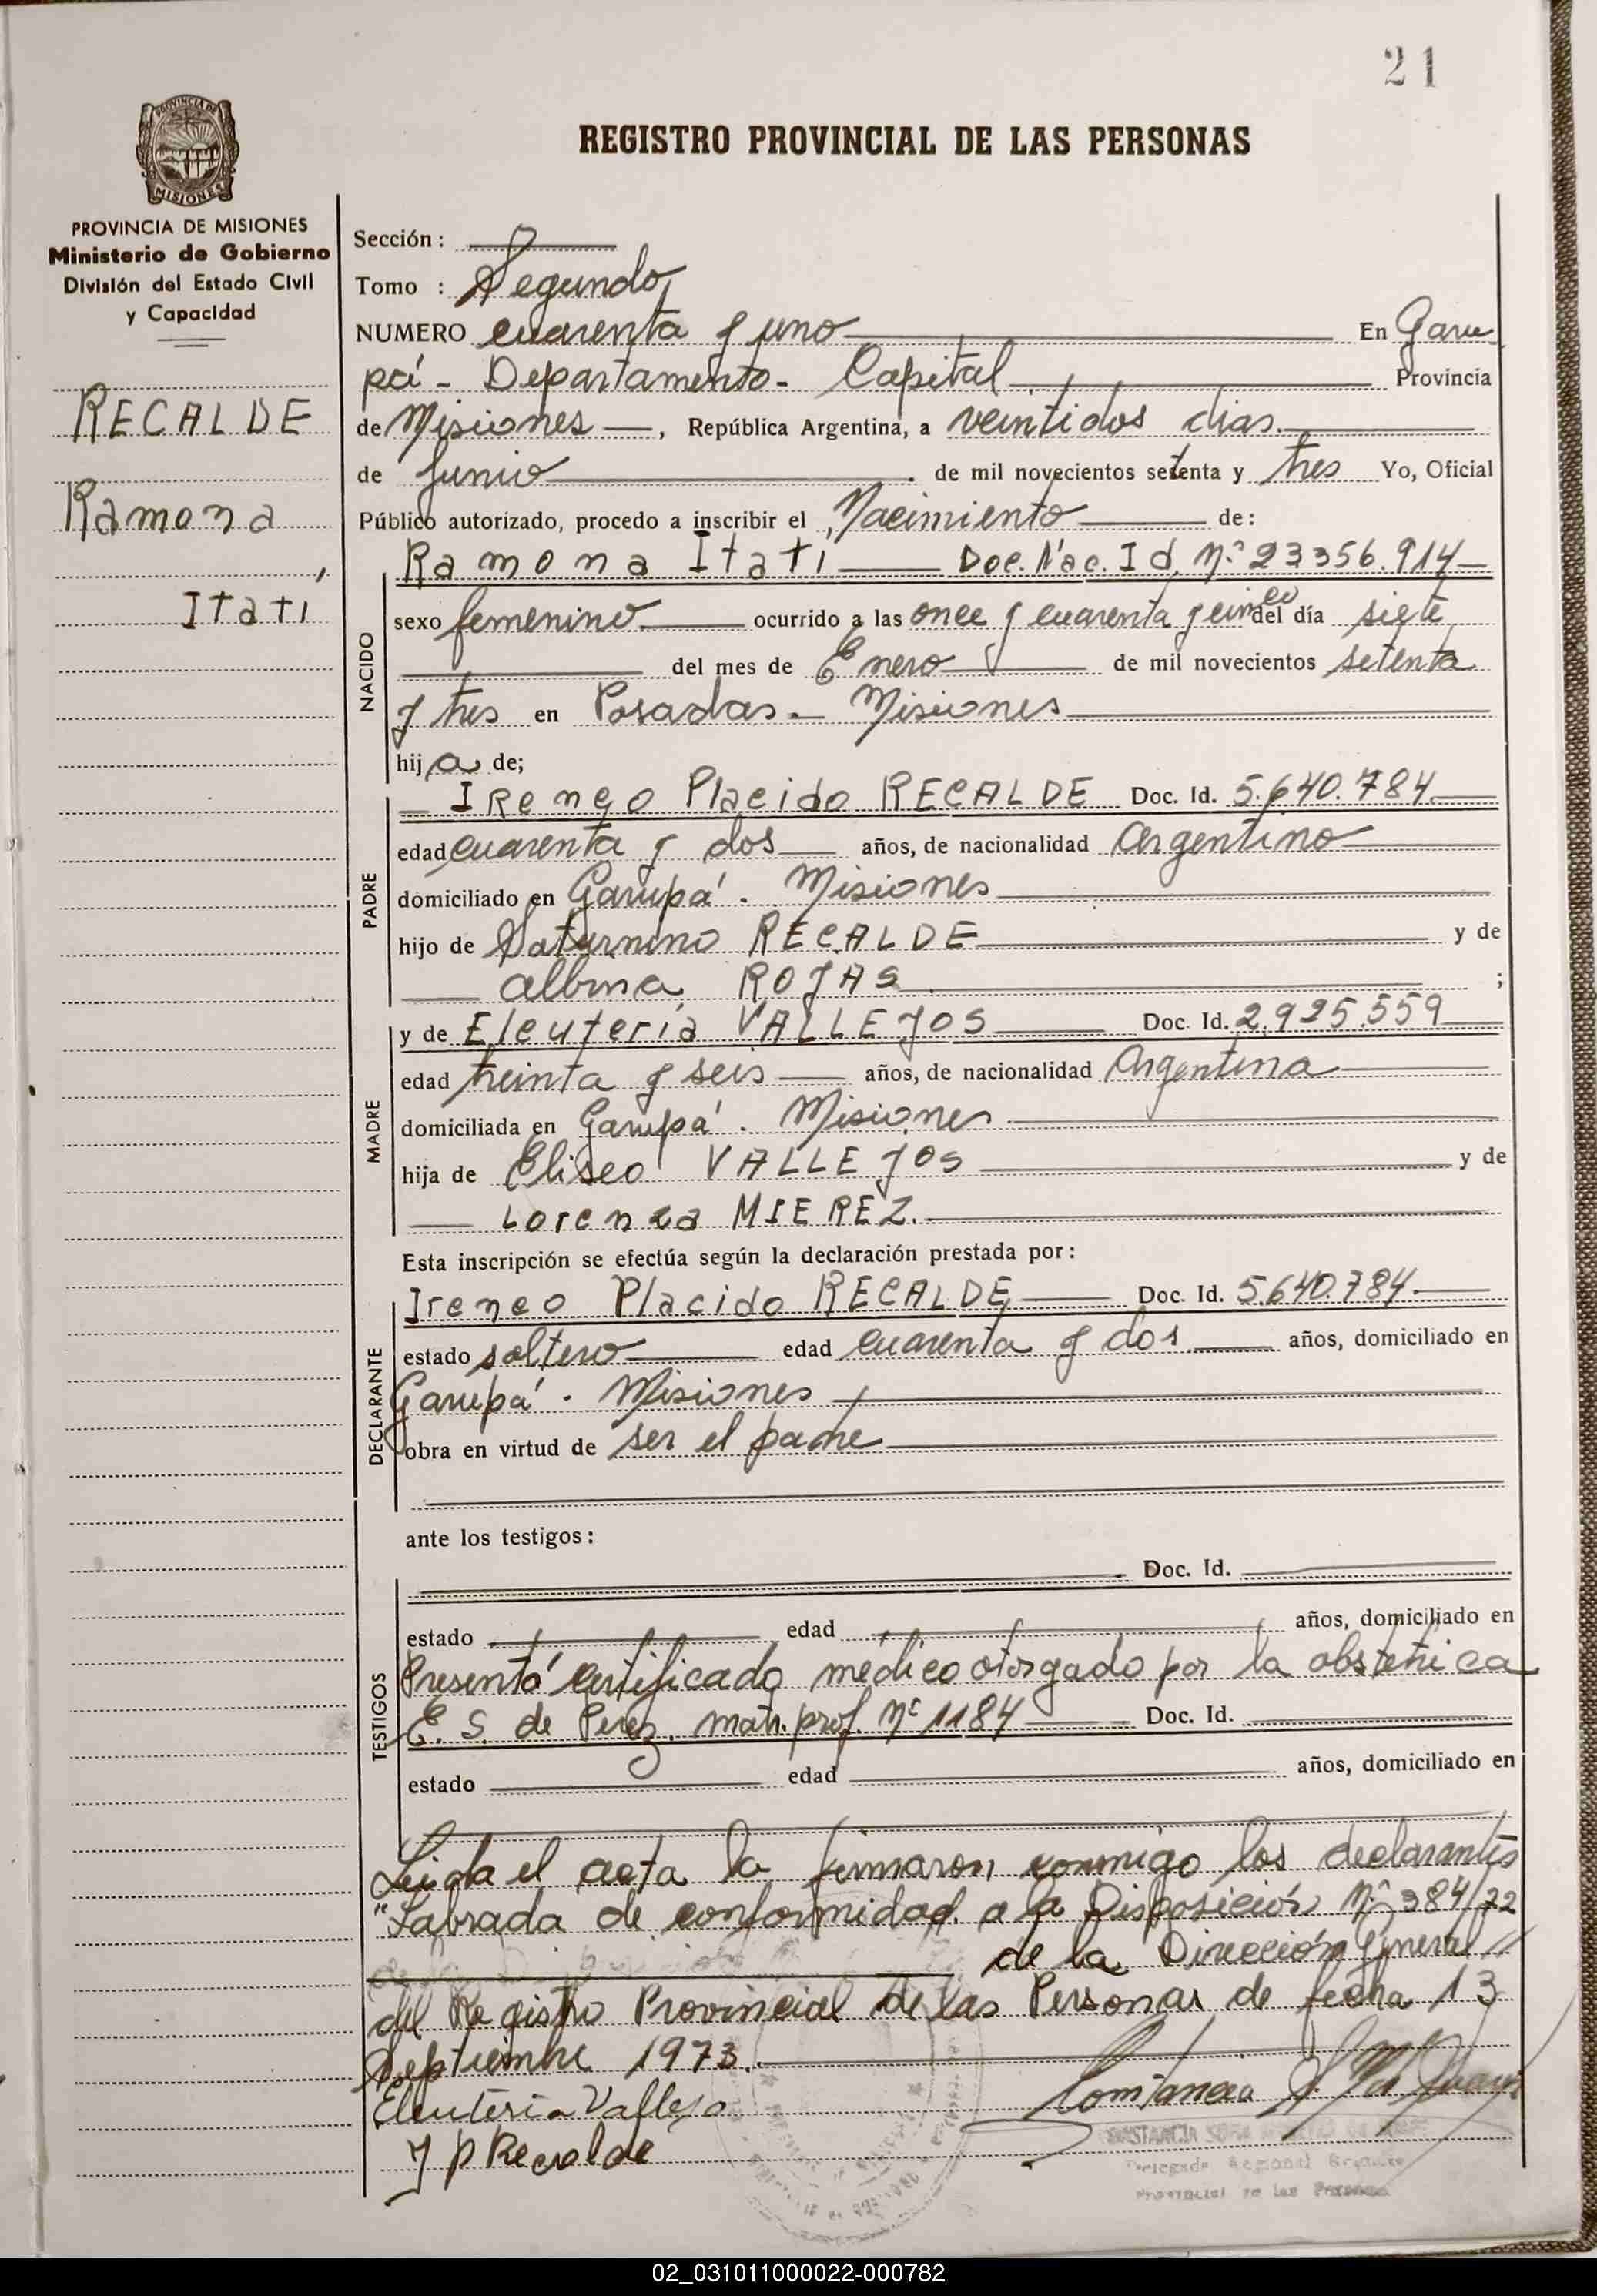 21
REGISTRO PROVINCIAL DE LAS PERSONAS
PROVINCIA DE MISIONES
MISIONES
PROVINCIA DE MISIONES
Ministerio de Gobierno
División del Estado Civil
y Capacidad
RECALDE
Ramona
,
Itati
Sección :
Tomo : Segundo
NUMERO cuarenta y uno En Garu
pá - Departamento - Capital Provincia
de Misiones, República Argentina, a veintidos dias.
de Junio de mil novecientos setenta y tres Yo, Oficial
Público autorizado, procedo a inscribir el Nacimiento de:
Ramona Itati Doc. Nac. Id. Nº 23356.914
NACIDO
sexo femenino ocurrido a las once y cuarenta y cinco del día siete
del mes de Enero de mil novecientos setenta
y tres en Posadas - Misiones
hija de;
PADRE
Ireneo Placido RECALDE Doc. Id. 5.640.784
edad cuarenta y dos años, de nacionalidad Argentino
domiciliado en Garupá . Misiones
hijo de Saturnino RECALDE y de
Albina ROJAS ;
MADRE
y de Eleuteria VALLEJOS Doc. Id. 2.925.559
edad treinta y seis años, de nacionalidad Argentina
domiciliada en Garupá . Misiones
hija de Eliseo VALLEJOS y de
Lorenza MIEREZ.
Esta inscripción se efectúa según la declaración prestada por :
DECLARANTE
Ireneo Placido RECALDE Doc. Id. 5.640.784
estado soltero edad cuarenta y dos años, domiciliado en
Garupá . Misiones
obra en virtud de ser el padre
ante los testigos :
TESTIGOS
Doc. Id.
estado edad años, domiciliado en
Presentó certificado médico otorgado por la obstetrica
E. S. de Perez. matr. prof. Nº 1184 Doc. Id.
estado edad años, domiciliado en
Leida el acta la firmaron conmigo los declarantes
"Labrada de conformidad a la Disposición Nº 384/72
de la Dirección General //
del Registro Provincial de las Personas de fecha 13
Septiembre 1973.
Eleuteria Vallejo
Constancia S.
J P Recalde
Delegada Regional
Provincial de las Personas
02_031011000022-000782